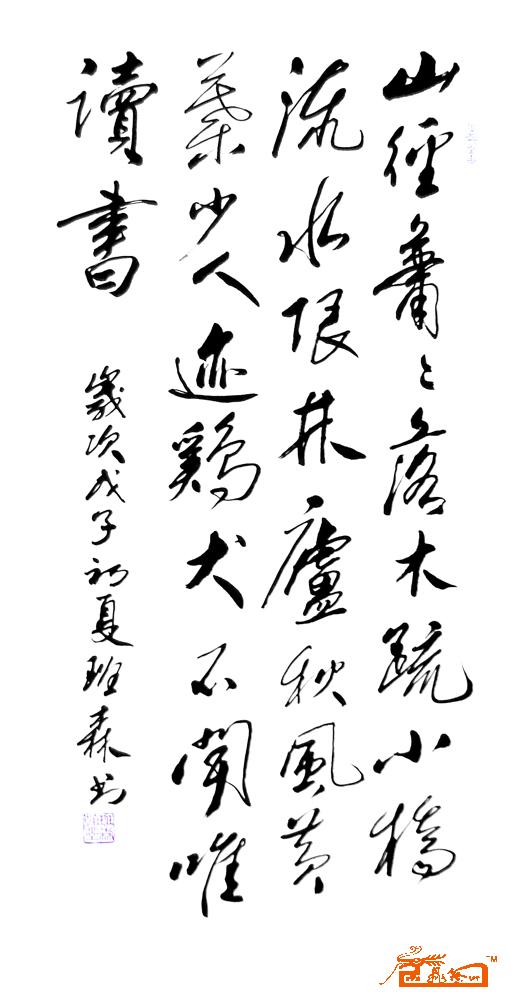 山徑蕭々落木疏小橋
流水限林廬秋風黃
葉少人迹鷄犬不聞唯
讀書
歲次戊子初夏班森书